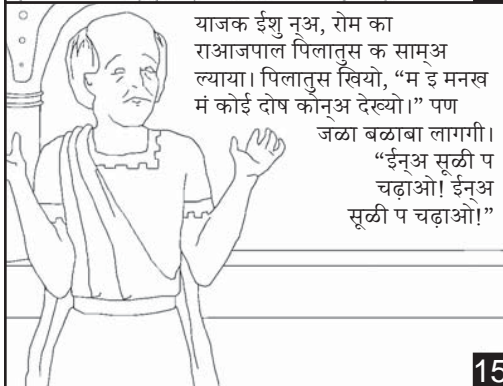 याजक ईशु न्अ, रोम का
राआजपाल पिलातुस क साम्अ
ल्याया। पिलातुस खियो, “म इ मनख
मं कोई दोष कोन्अ देख्यो।” पण
जळा बळाबा लागगी।
“ईन्अ सूळी प
चढ़ाओ! ईन्अ
सूळी प चढ़ाओ!”
15